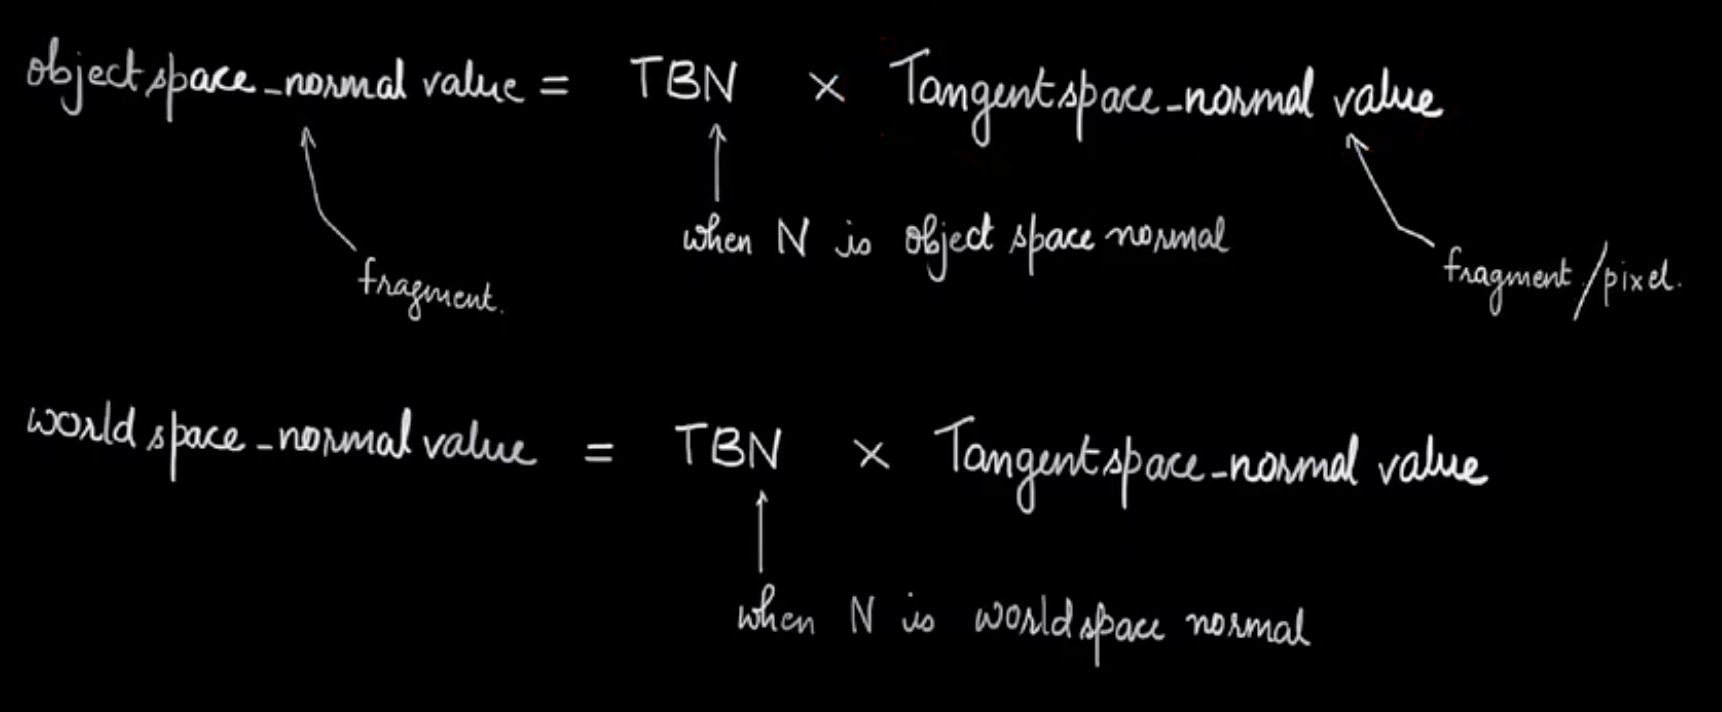 object space_normal value = TBN × Tangent space_normal value
when N is object space normal
fragment.
fragment/pixel.
world space_normal value = TBN × Tangent space_normal value
when N is world space normal